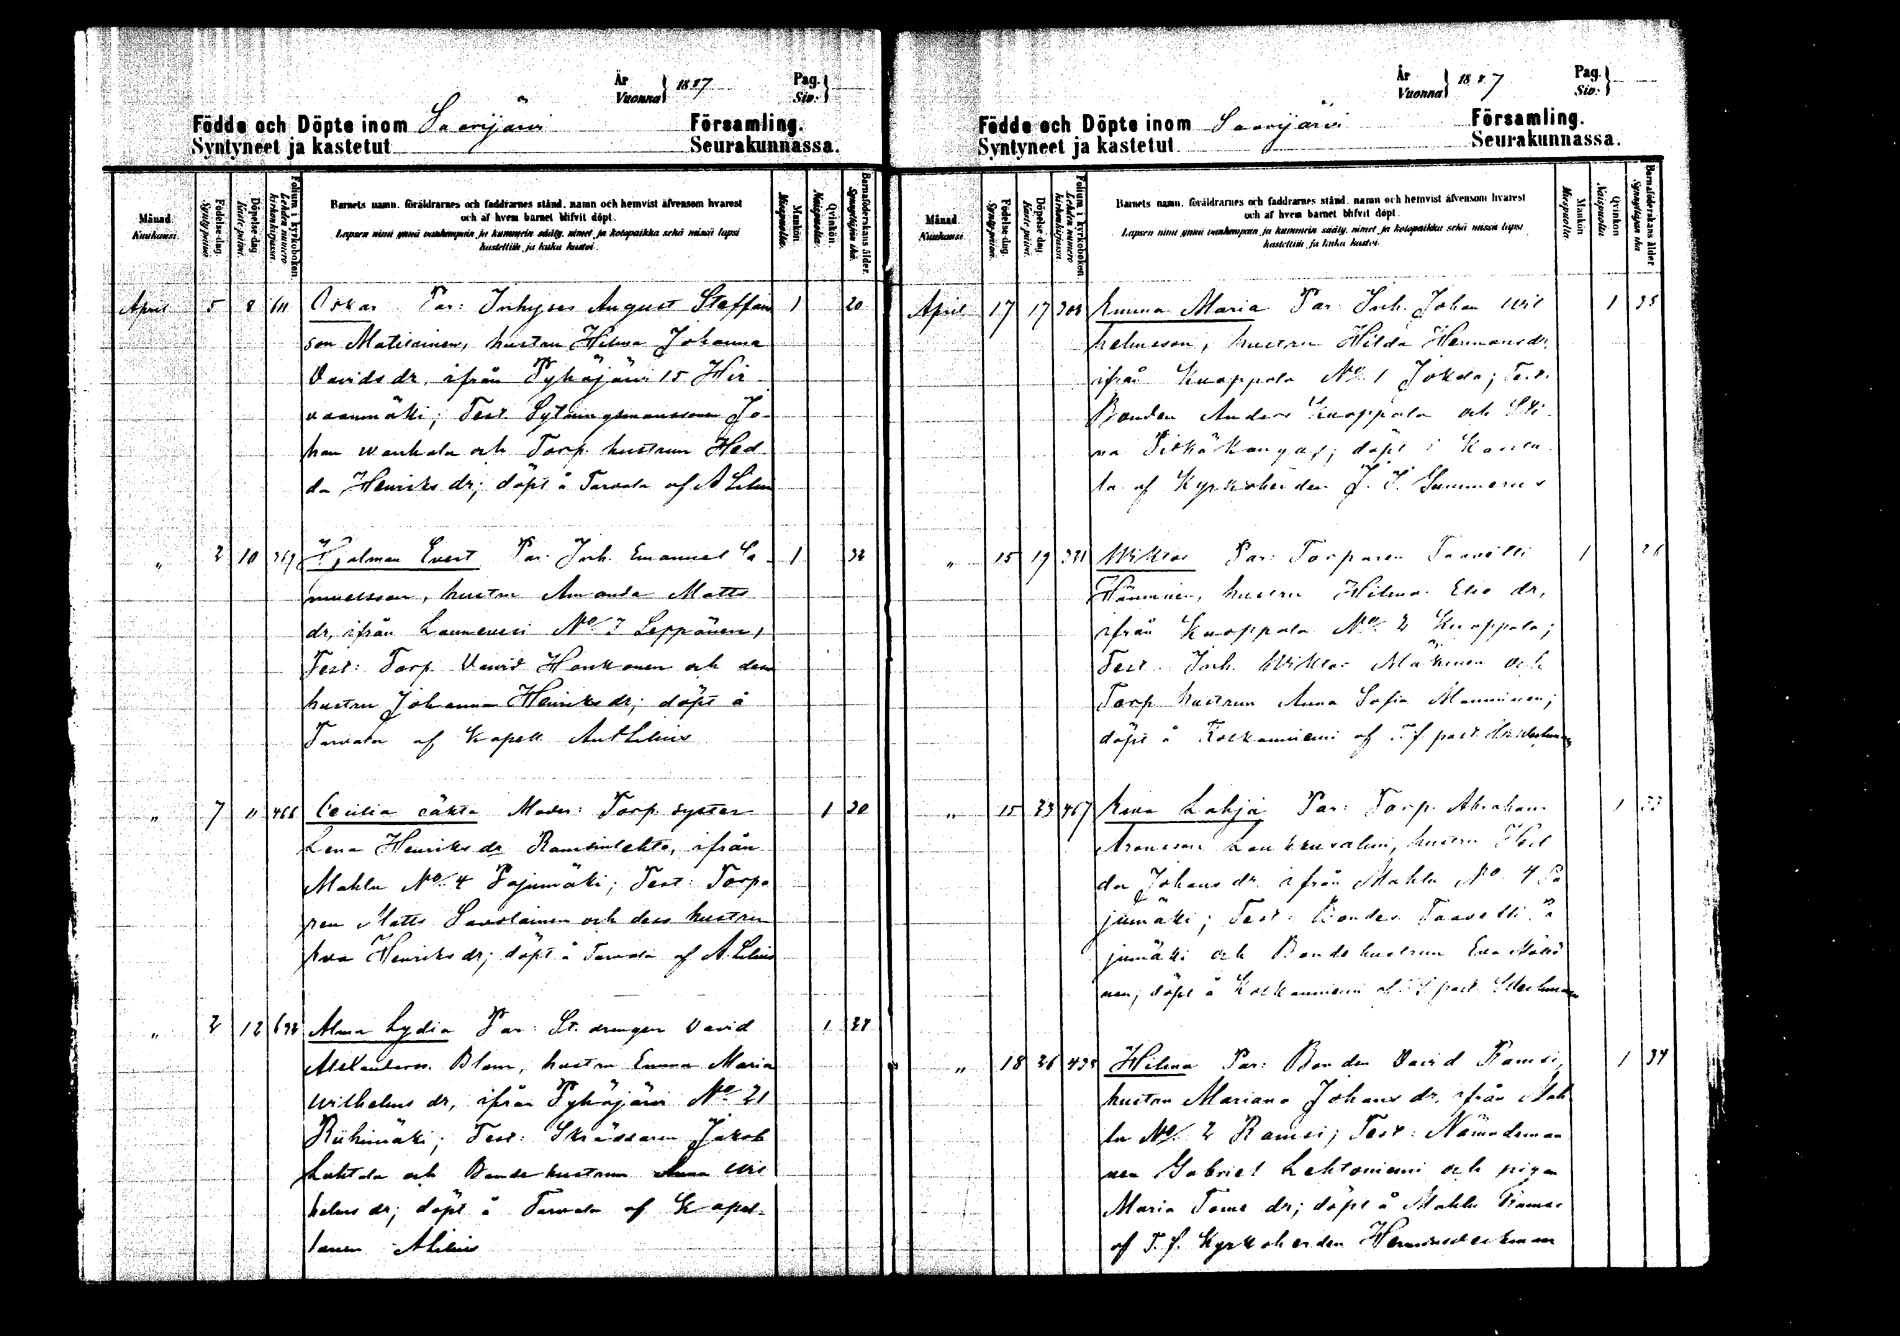 År
Vuonna } 1887
Pag.
Siv. }
Födde och Döpte inom Saarijärvi Församling.
Syntyneet ja kastetut Seurakunnassa.
Månad. Kuukausi.
Födelse-dag. Synty-päivä.
Döpelse-dag. Kaste-päivä.
Folium i kyrkoboken. Lehden numero kirkonkirjassa.
Barnets namn, föräldrarnes och faddrarnes stånd, namn och hemvist äfvensom hvarest
och af hvem barnet blifvit döpt.
Lapsen nimi ynnä vanhempain ja kummein sääty, nimet ja kotopaikka sekä missä lapsi
kastettiin ja kuka kastoi.
Mankön. Miespuolta.
Qvinkön. Naispuolta.
Barnaföderskans ålder. Synnyttäjän ikä.
April 5 8 611 Oskar Par: Inhyses August Staffans 1 20
son Matilainen, hustru Hilma Johanna
Davids dr, ifrån Pyhäjärvi 15 Hir
vaanmäki; Test. Sytningsmanssonen Jo-
han Wanhala och Torp. hustrun Hed
da Henriks dr; döpt å Tarvala af A Lilius
" 2 10 369 Hjalmar Evert Par: Inh. Emanuel Sa- 1 32
muelsson, hustru Amanda Matts
dr, ifrån Lannevesi No 7 Leppänen,
Test: Torp. David Honkonen och dess
hustru Johanna Henriks dr; döpt å
Tarvala af Kapell. Ant Lilius
" 7 " 466 Cecilia oäkta Moder: Torp. syster 1 20
Lena Henriks dr Ramsinlehto, ifrån
Mahlu No 4 Pajumäki; Test: Torpa
ren Matts Savolainen och dess hustru
Eva Henriks dr; döpt å Tarvala af A. Lilius
" 2 12 Alma Lydia Par: St. drengen David 1 27
Alexanders. Blom, hustru Emma Maria
Wilhelms dr, ifrån Pyhäjärvi No 21
Riihimäki; Test: Skräddaren Jakob
Lahtola och Bonde hustrun Anna Wil
helms dr; döpt å Tarvala af Kapel-
lanen A Lilius
År
Vuonna } 1887
Pag.
Siv. }
Födde och Döpte inom Saarijärvi Församling.
Syntyneet ja kastetut Seurakunnassa.
Månad. Kuukausi.
Födelse-dag. Synty-päivä.
Döpelse-dag. Kaste-päivä.
Folium i kyrkoboken. Lehden numero kirkonkirjassa.
Barnets namn, föräldrarnes och faddrarnes stånd, namn och hemvist äfvensom hvarest
och af hvem barnet blifvit döpt.
Lapsen nimi ynnä vanhempain ja kummein sääty, nimet ja kotopaikka sekä missä lapsi
kastettiin ja kuka kastoi.
Mankön. Miespuolta.
Qvinkön. Naispuolta.
Barnaföderskans ålder. Synnyttäjän ikä.
April 17 17 308 Emma Maria Par: Inh. Johan Wil 1 25
helmsson, hustru Hilda Hermans dr,
ifrån Kuoppala No 1 Jokela; Test:
Bonden Anders Kuoppala och Sti
na Pitkäkangas; döpt i
la af Kyrkoherden J. I. Summerus
" 15 19 321 Wiktor Par: Torparen Taavetti 1 26
Hänninen, hustru Hilma Elis dr,
ifrån Kuoppala No 2 Kuoppala;
Test. Inh. Wiktor Mäkinen och
Torp. hustrun Anna Sofia Manninen;
döpt å Kolkanniemi af T. f. past.
" 15 23 467 Eeva Lahja Par: Torp. Abraham 1 33
Aronsson Laukkusalmi, hustru Hed
da Johans dr. ifrån Mahlu No 4 Pa
jumäki; Test: Bonden Taavetti Pa
jumäki och Bonde hustrun Eva
nen; döpt å Kolkanniemi af T. f. past.
" 18 26 435 Hilma Par: Bonden David Ramsi, 1 34
hustru Mariana Johans dr, ifrån Mah
lu No 2 Ramsi; Test: Nämndeman
nen Gabriel Lehtoniemi och pigan
Maria Toms dr; döpt å Mahlu
af T. f. Kyrkoherden